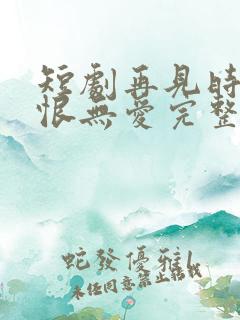 短劇再見時
恨無愛完整
蛇發優雅!
未经同意禁止转载